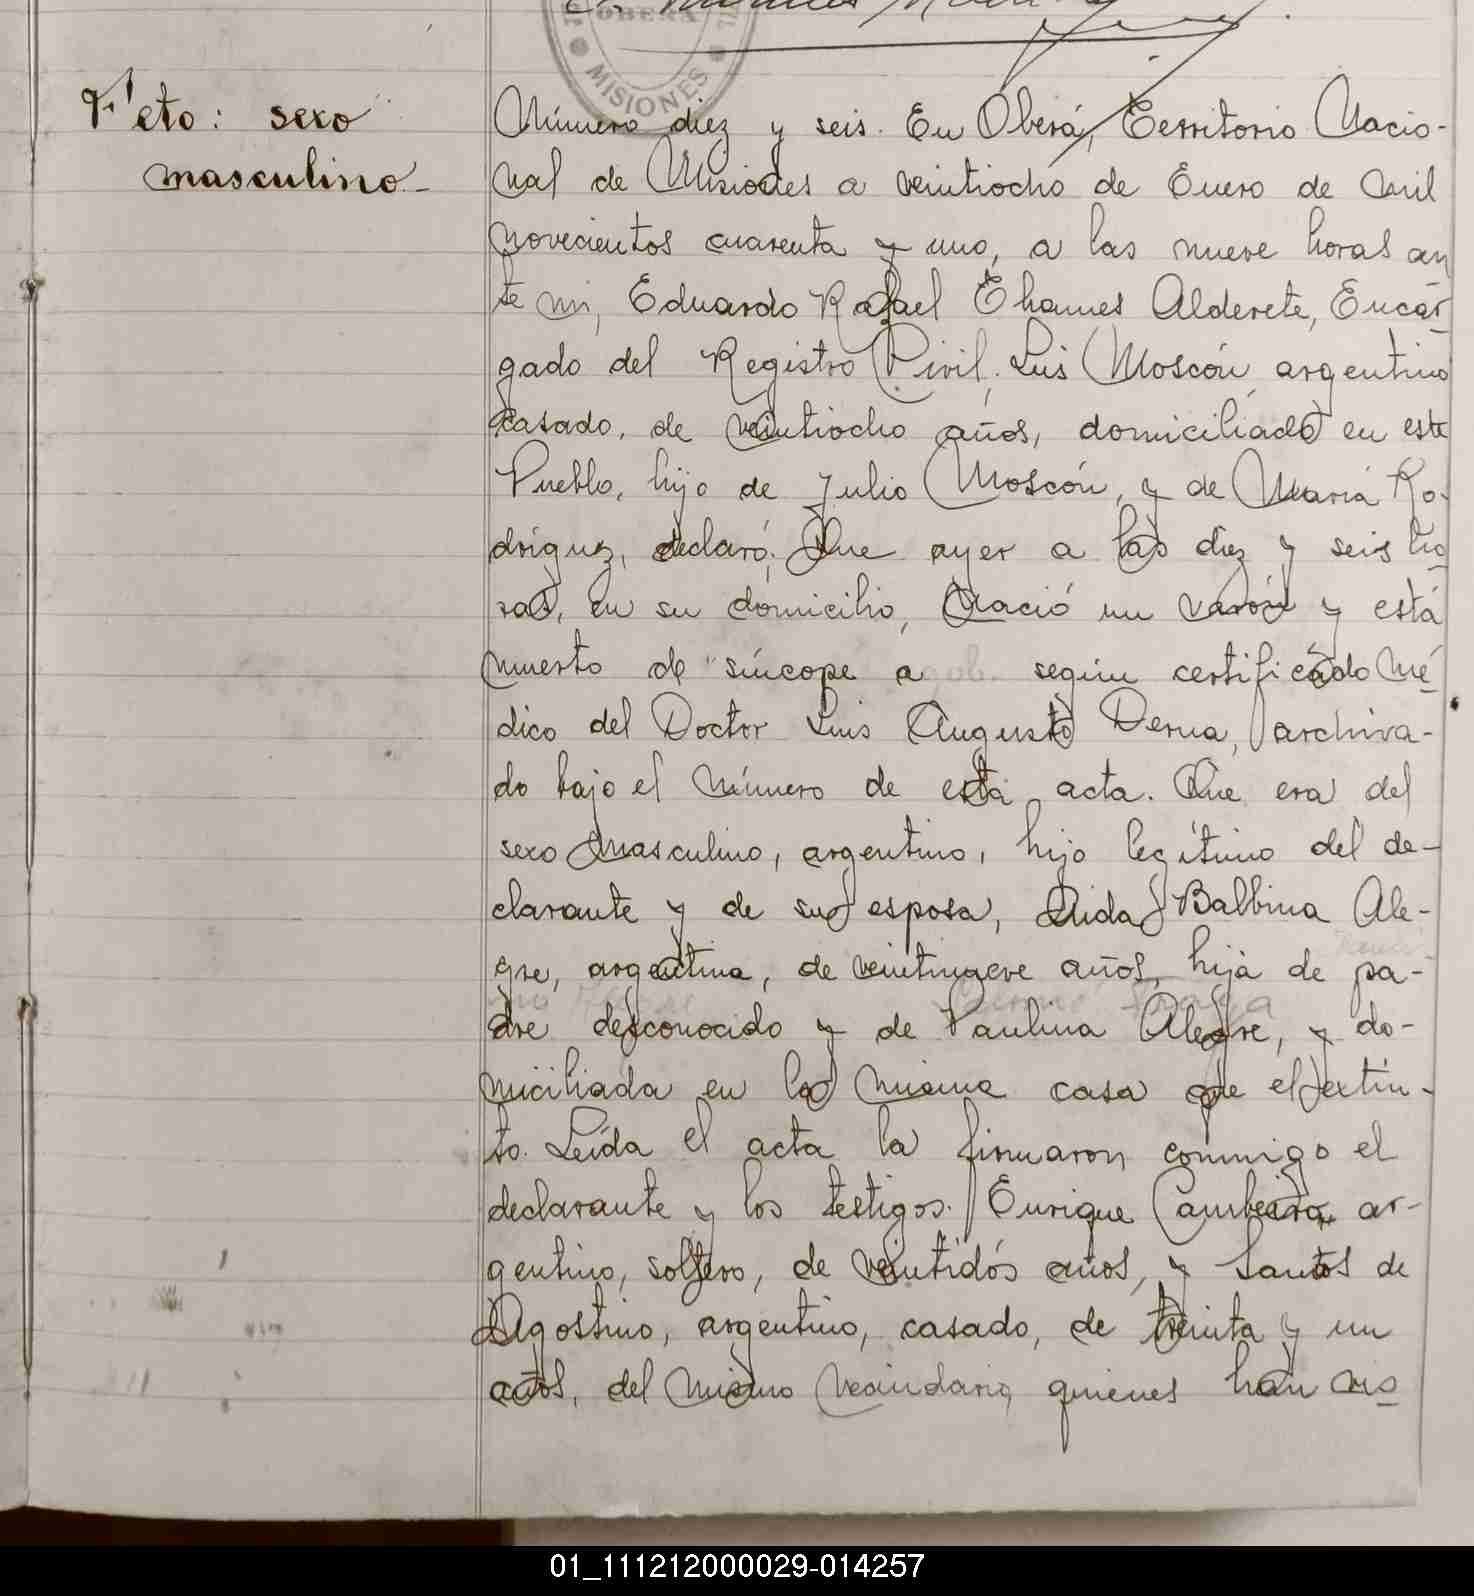 OBERÁ
MISIONES
Feto: sexo
masculino-
Número diez y seis. En Oberá, Territorio Nacio-
nal de Misiones a veintiocho de Enero de mil
novecientos cuarenta y uno, a las nueve horas an
te mi, Eduardo Rafael Thames Alderete, Encar
gado del Registro Civil, Luis Moscón, argentino
casado, de veintiocho años, domiciliado en este
Pueblo, hijo de Julio Moscón, y de María Ro-
dríguez, declaró: Que ayer a las diez y seis ho
ras, en su domicilio, nació un varón y está
muerto de síncope a según certificado mé
dico del Doctor Luis Augusto Derna, archiva-
do bajo el número de esta acta. Que era del
sexo masculino, argentino, hijo legítimo del de-
clarante y de su esposa, Aida Balbina Ale-
gre, argentina, de veintinueve años, hija de pa-
dre desconocido y de Paulina Alegre, y do-
miciliada en la misma casa que el extin-
to. Leída el acta la firmaron conmigo el
declarante y los testigos. Enrique Cambeiro, ar-
gentino, soltero, de veintidós años, y Santos de
Agostino, argentino, casado, de treinta y un
años, del mismo vecindario, quienes han vis
01_111212000029-014257